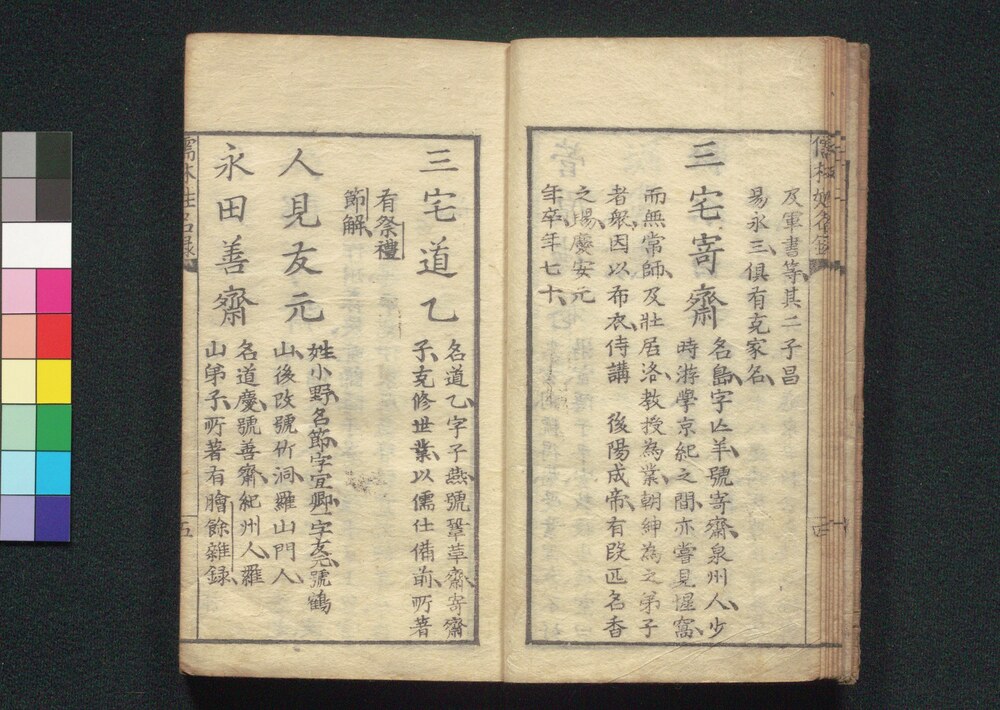 儒林姓名録
四
及軍書等其二子昌
易永三俱有克家名
三宅寄齋
名島字亡羊號寄齋泉州人少
時游學京紀之間亦嘗見惺窩
而無常師及壯居洛教授為業朝紳為之弟子
者衆因以布衣侍講　後陽成帝有改匹名香
之場慶安元
年卒年七十
三宅道乙
名道乙字子燕號鞏革齋寄齋
子克修世業以儒仕備前所著
有祭禮
節解
人見友元
姓小野名節字宜卿一字友元號鶴
山後改號竹洞羅山門人
永田善齋
名道慶號善齋紀州人羅
山弟子所著有膾餘雜録
儒林姓名録
五